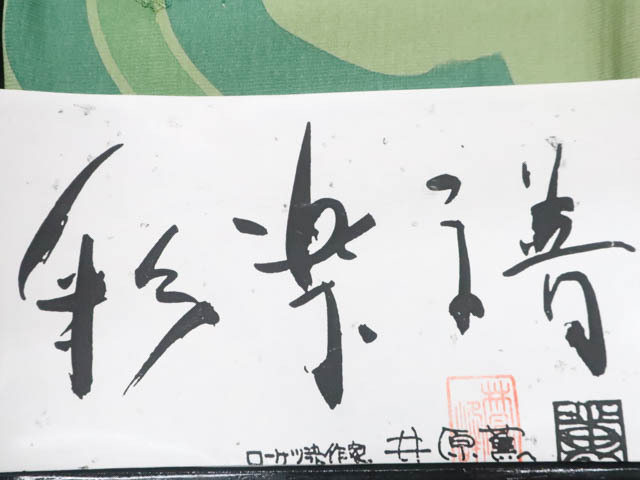 彩楽譜
ローケツ染作家 井原薫